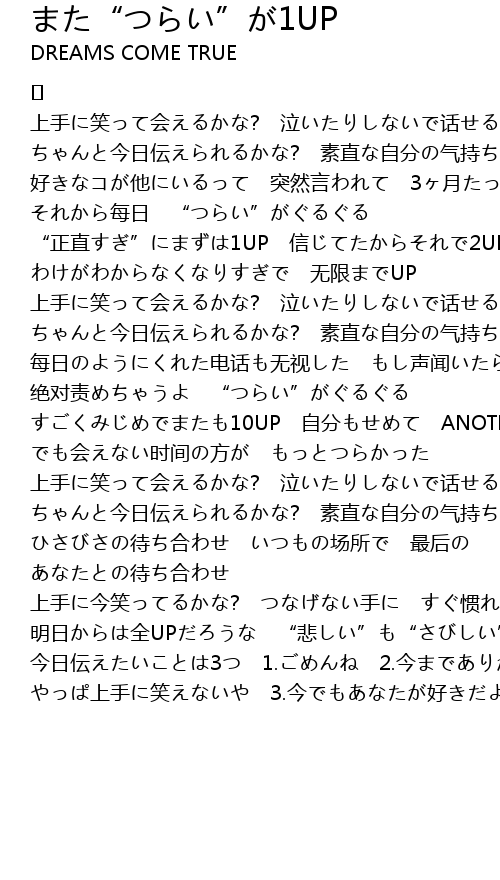 また“つらい”が1UP
DREAMS COME TRUE
[]
上手に笑って会えるかな?　泣いたりしないで話せる
ちゃんと今日伝えられるかな?　素直な自分の気持ち
好きなコが他にいるって　突然言われて　3ヶ月たっ
それから毎日　“つらい”がぐるぐる
“正直すぎ”にまずは1UP　信じてたからそれで2U
わけがわからなくなりすぎで　无限までUP
上手に笑って会えるかな?　泣いたりしないで話せる
ちゃんと今日伝えられるかな?　素直な自分の気持ち
毎日のようにくれた电话も无视した　もし声闻いたら
绝对责めちゃうよ　“つらい”がぐるぐる
すごくみじめでまたも10UP　自分もせめて　ANOT
でも会えない时间の方が　もっとつらかった
上手に笑って会えるかな?　泣いたりしないで話せる
ちゃんと今日伝えられるかな?　素直な自分の気持ち
ひさびさの待ち合わせ　いつもの场所で　最后の
あなたとの待ち合わせ
上手に今笑ってるかな?　つなげない手に　すぐ惯れ
明日からは全UPだろうな　“悲しい”も“さびしい”
今日伝えたいことは3つ　1.ごめんね　2.今までありが
やっぱ上手に笑えないや　3.今でもあなたが好きだよ